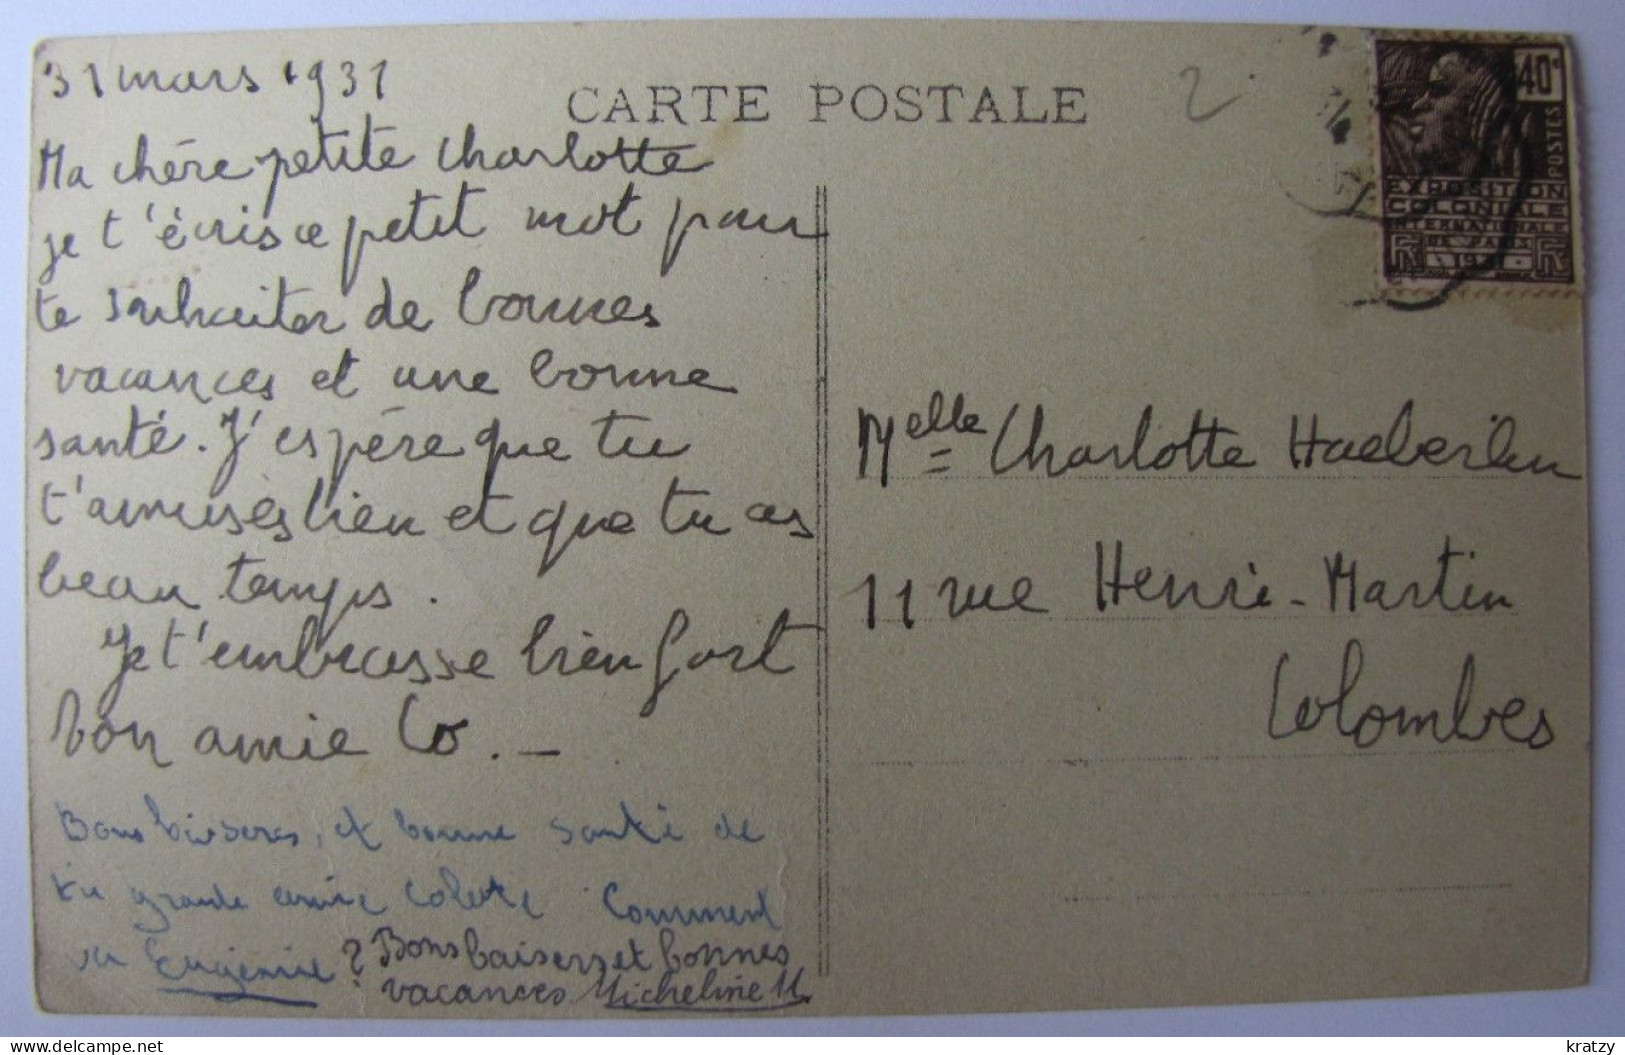 31 mars 1931
Ma chére petite Charlotte
je t'écris ce petit mot pour
te souhaiter de bonnes
vacances et une bonne
santé. J'espére que tu
t'amuses bien et que tu as
beau temps.
Je t'embrasse bien fort
ton amie Co. -
Bons baisers, et bonne santé de
ta grande amie Colette Comment
va Eugénie ?
Bons baisers et bonnes
vacances Micheline M.
CARTE POSTALE
2
40c
POSTES
EXPOSITION
COLONIALE
INTERNATIONALE
DE PARIS
1931
RF RF
Melle Charlotte Haeberlen
11 rue Henri-Martin
Colombes
kratzy
delcampe.net